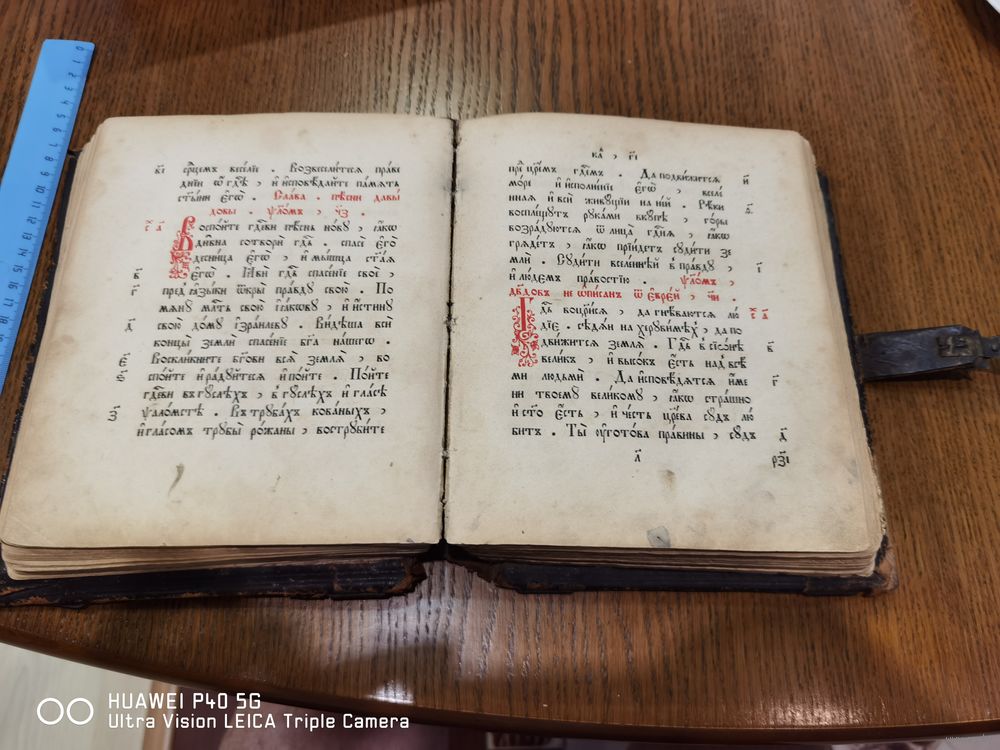 в҃і срⷣцемъ весе́лїе . Возвесели́теся пра́ве
днїи ѡ҆ гдⷭ҇ѣ , и҆ и҆сповѣ́дайте па́мять
ст҃ы́ни є҆гѡ̀ . Сла́ва . пѣ́сни давы́
довы . ѱало́мъ , ч҃з .
Воспо́йте гдⷭ҇еви пѣ́снь но́ву , ꙗ҆́кѡ
ди́вна сотворѝ гдⷭ҇ь . спасѐ є҆го̀
десни́ца є҆гѡ̀ , и҆ мы́шца ст҃а́я
в҃ є҆гѡ̀ . Ꙗ҆вѝ гдⷭ҇ь спасе́нїе своѐ ,
г҃ пред̾ ꙗ҆зы́ки ѿкры̀ пра́вду свою̀ . По
мяну̀ млⷭ҇ть свою̀ і҆а́кѡву , и҆ и҆́стину
д҃ свою̀ до́му і҆зра́илеву . Ви́дѣша всѝ
концы̀ землѝ спасе́нїе бг҃а на́шегѡ .
є҃ Воскли́кните бг҃ови вся̀ земля̀ , во
ѕ҃ спо́йте и҆ ра́дуйтеся и҆ по́йте . По́йте
гдⷭ҇еви въ гу́слѣхъ , в̾ гу́слѣхъ и҆ гла́сѣ
з҃ ѱало́мстѣ . Въ труба́хъ ко́ваныхъ ,
и҆ гла́сомъ трубы̀ ро́жаны , вострубі́те
ка҃ , г҃і
пред̾ цр҃е́мъ гдⷭ҇емъ . Да подви́жится и҃
мо́ре и҆ и҆сполне́нїе є҆гѡ̀ , вселе́
нная и҆ всѝ живу́щїи на не́й . Рѣ́ки
воспле́щутъ рука́ми вку́пѣ , го́ры
возра́дуются ѿ лица̀ гдⷭ҇ня , ꙗ҆́кѡ
гряде́тъ , ꙗ҆́кѡ прїи́детъ суди́ти зе
млѝ . Суди́ти вселе́ннѣй в̾ пра́вду , і҃
и҆ лю́демъ пра́востїю . ѱало́мъ ,
дв҃довъ неѡпи́санъ ѿ є҆вре́й , ч҃и .
Гдⷭ҇ь воцр҃и́ся , да гнѣ́ваются лю́
дїе . сѣдя́й на херуви́мѣхъ , да по
дви́жится земля̀ . Гдⷭ҇ь в̾ сїѡ́нѣ в҃
вели́къ , и҆ высо́къ є҆́сть над̾ всѣ́
ми людьмѝ . Да и҆сповѣ́дятся и҆́ме г҃
ни твоему̀ вели́кому , ꙗ҆́кѡ стра́шно
и҆ ст҃о є҆́сть , и҆ че́сть цр҃е́ва су́дъ лю́
битъ . Ты̀ ᲂу҆гото́ва правины̀ , су́дъ д҃
л҃ рз҃і
HUAWEI P40 5G
Ultra Vision LEICA Triple Camera